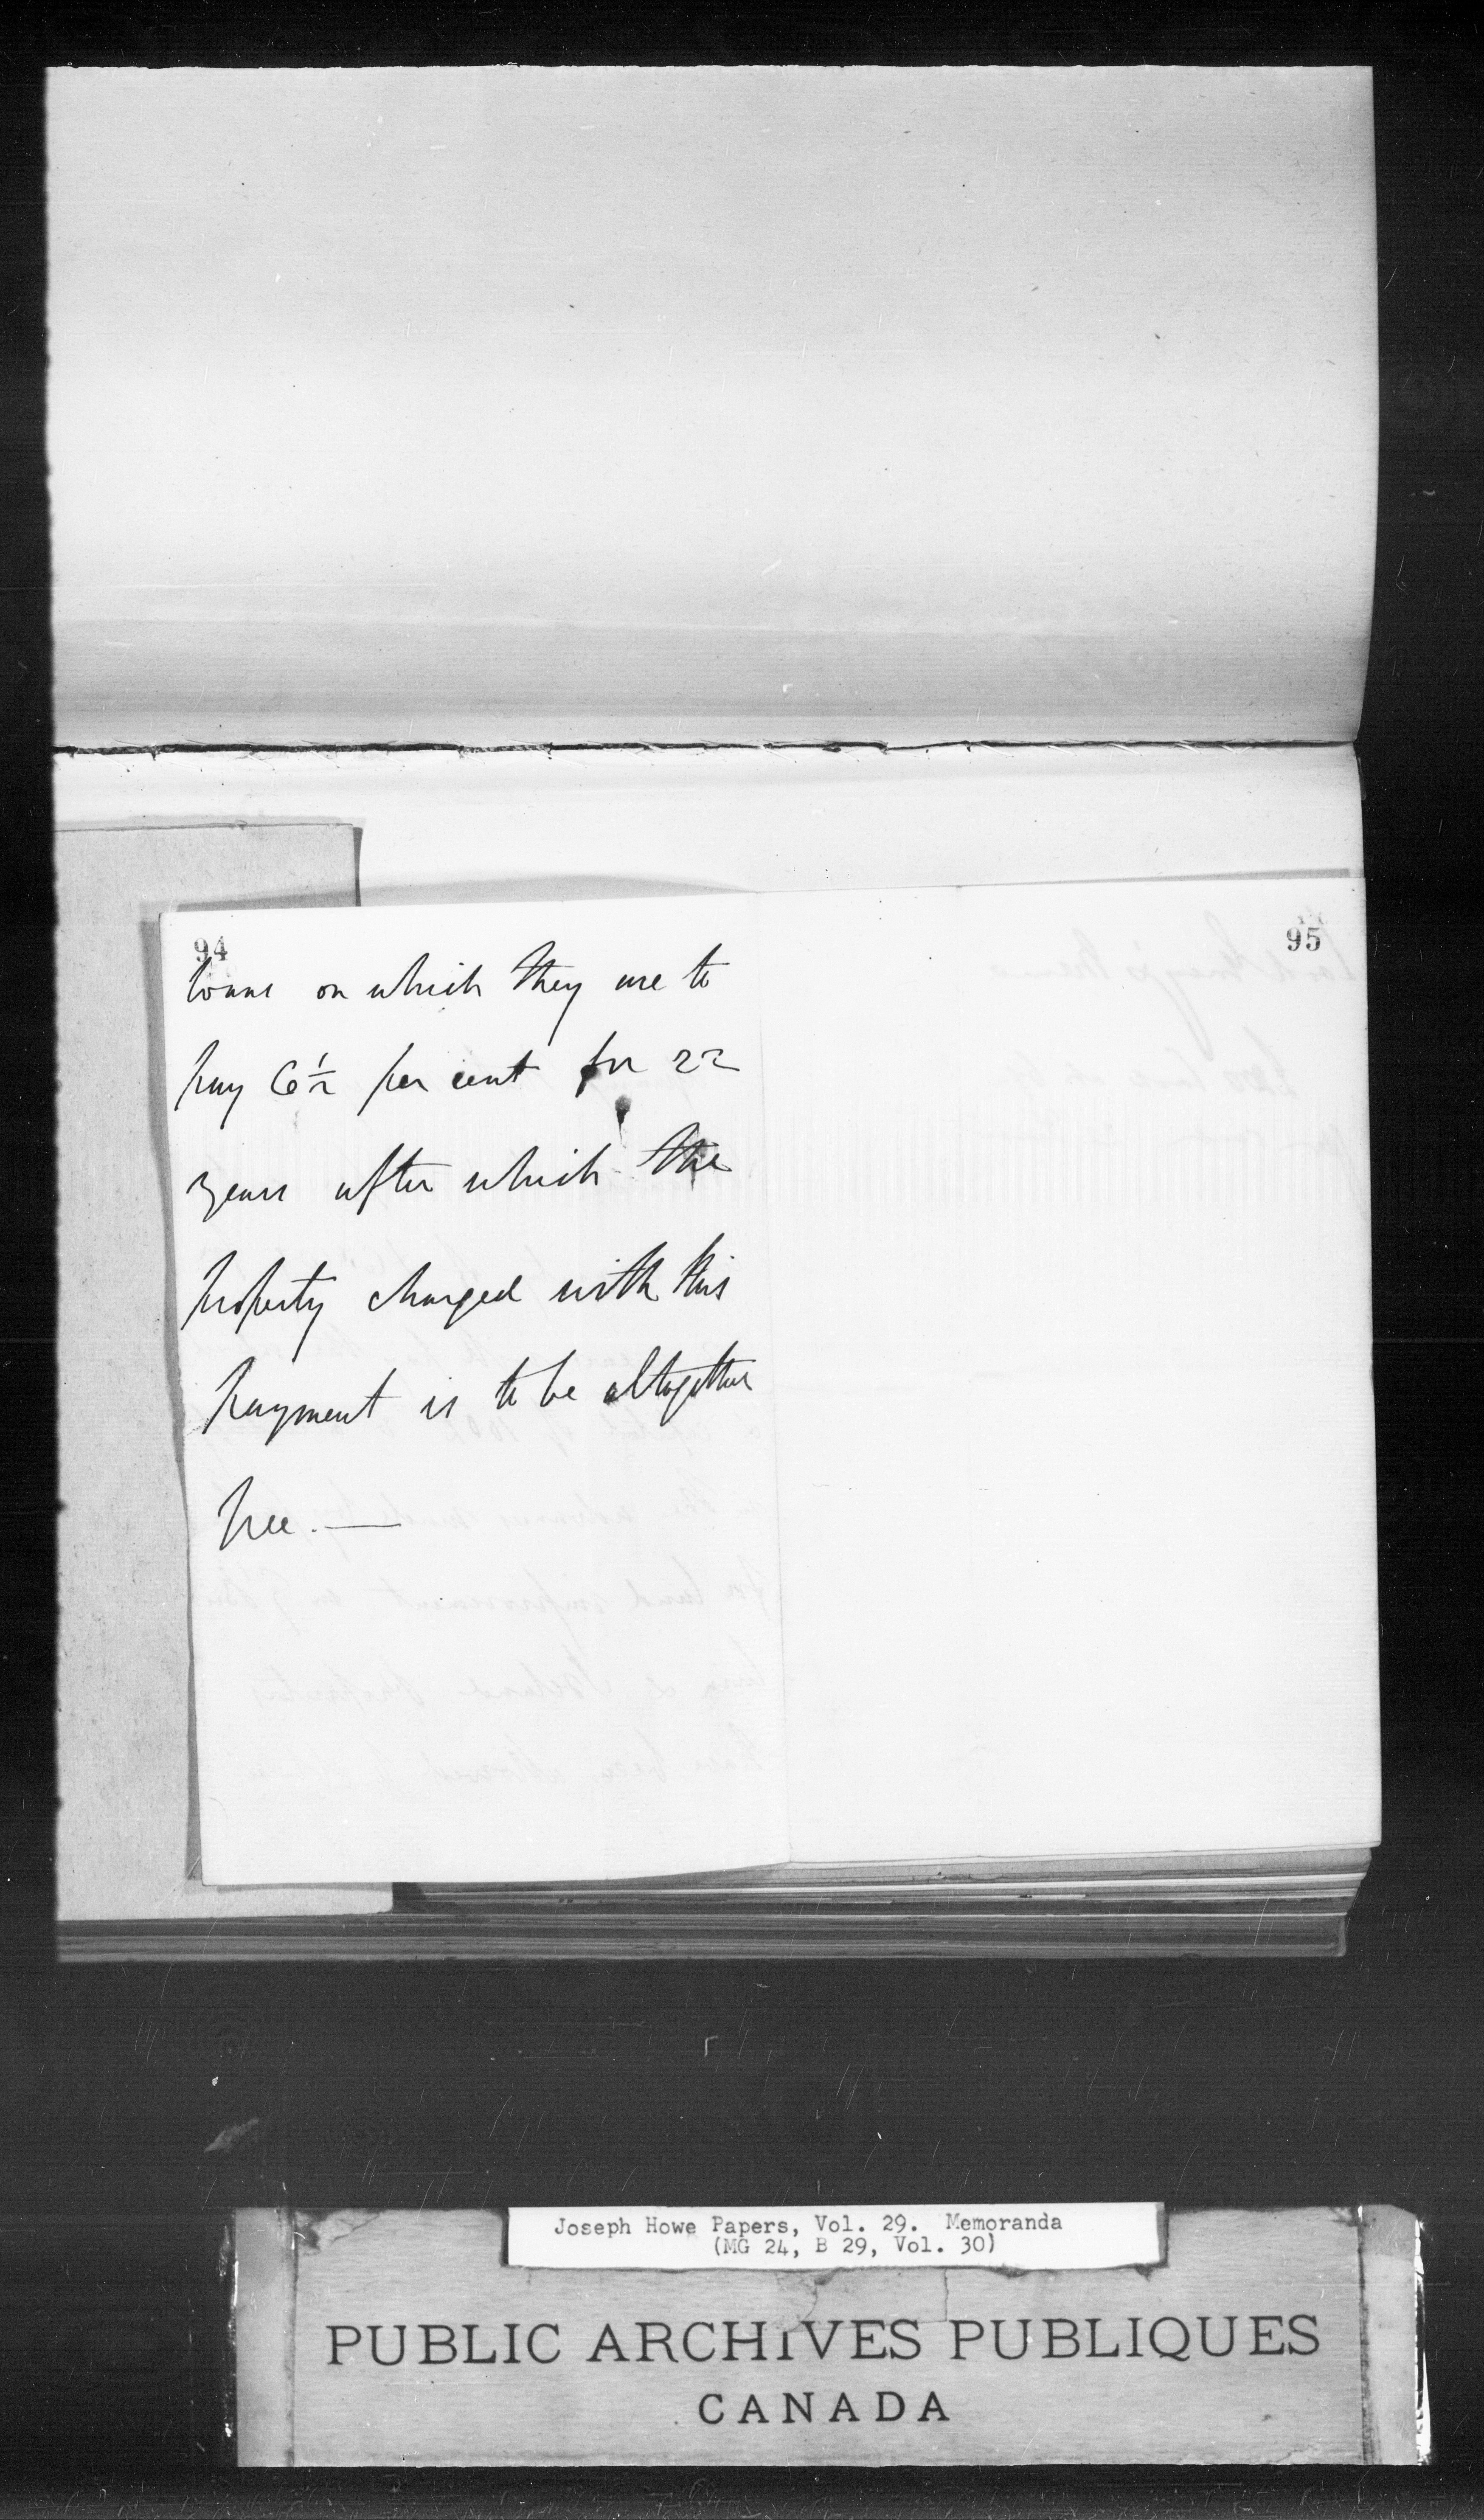 94
loans on which they are to
pay 6½ per cent for 22
years after which the
property charged with this
payment is to be altogether
free. —
95
Joseph Howe Papers, Vol. 29. Memoranda
(MG 24, B 29, Vol. 30)
PUBLIC ARCHIVES PUBLIQUES
CANADA